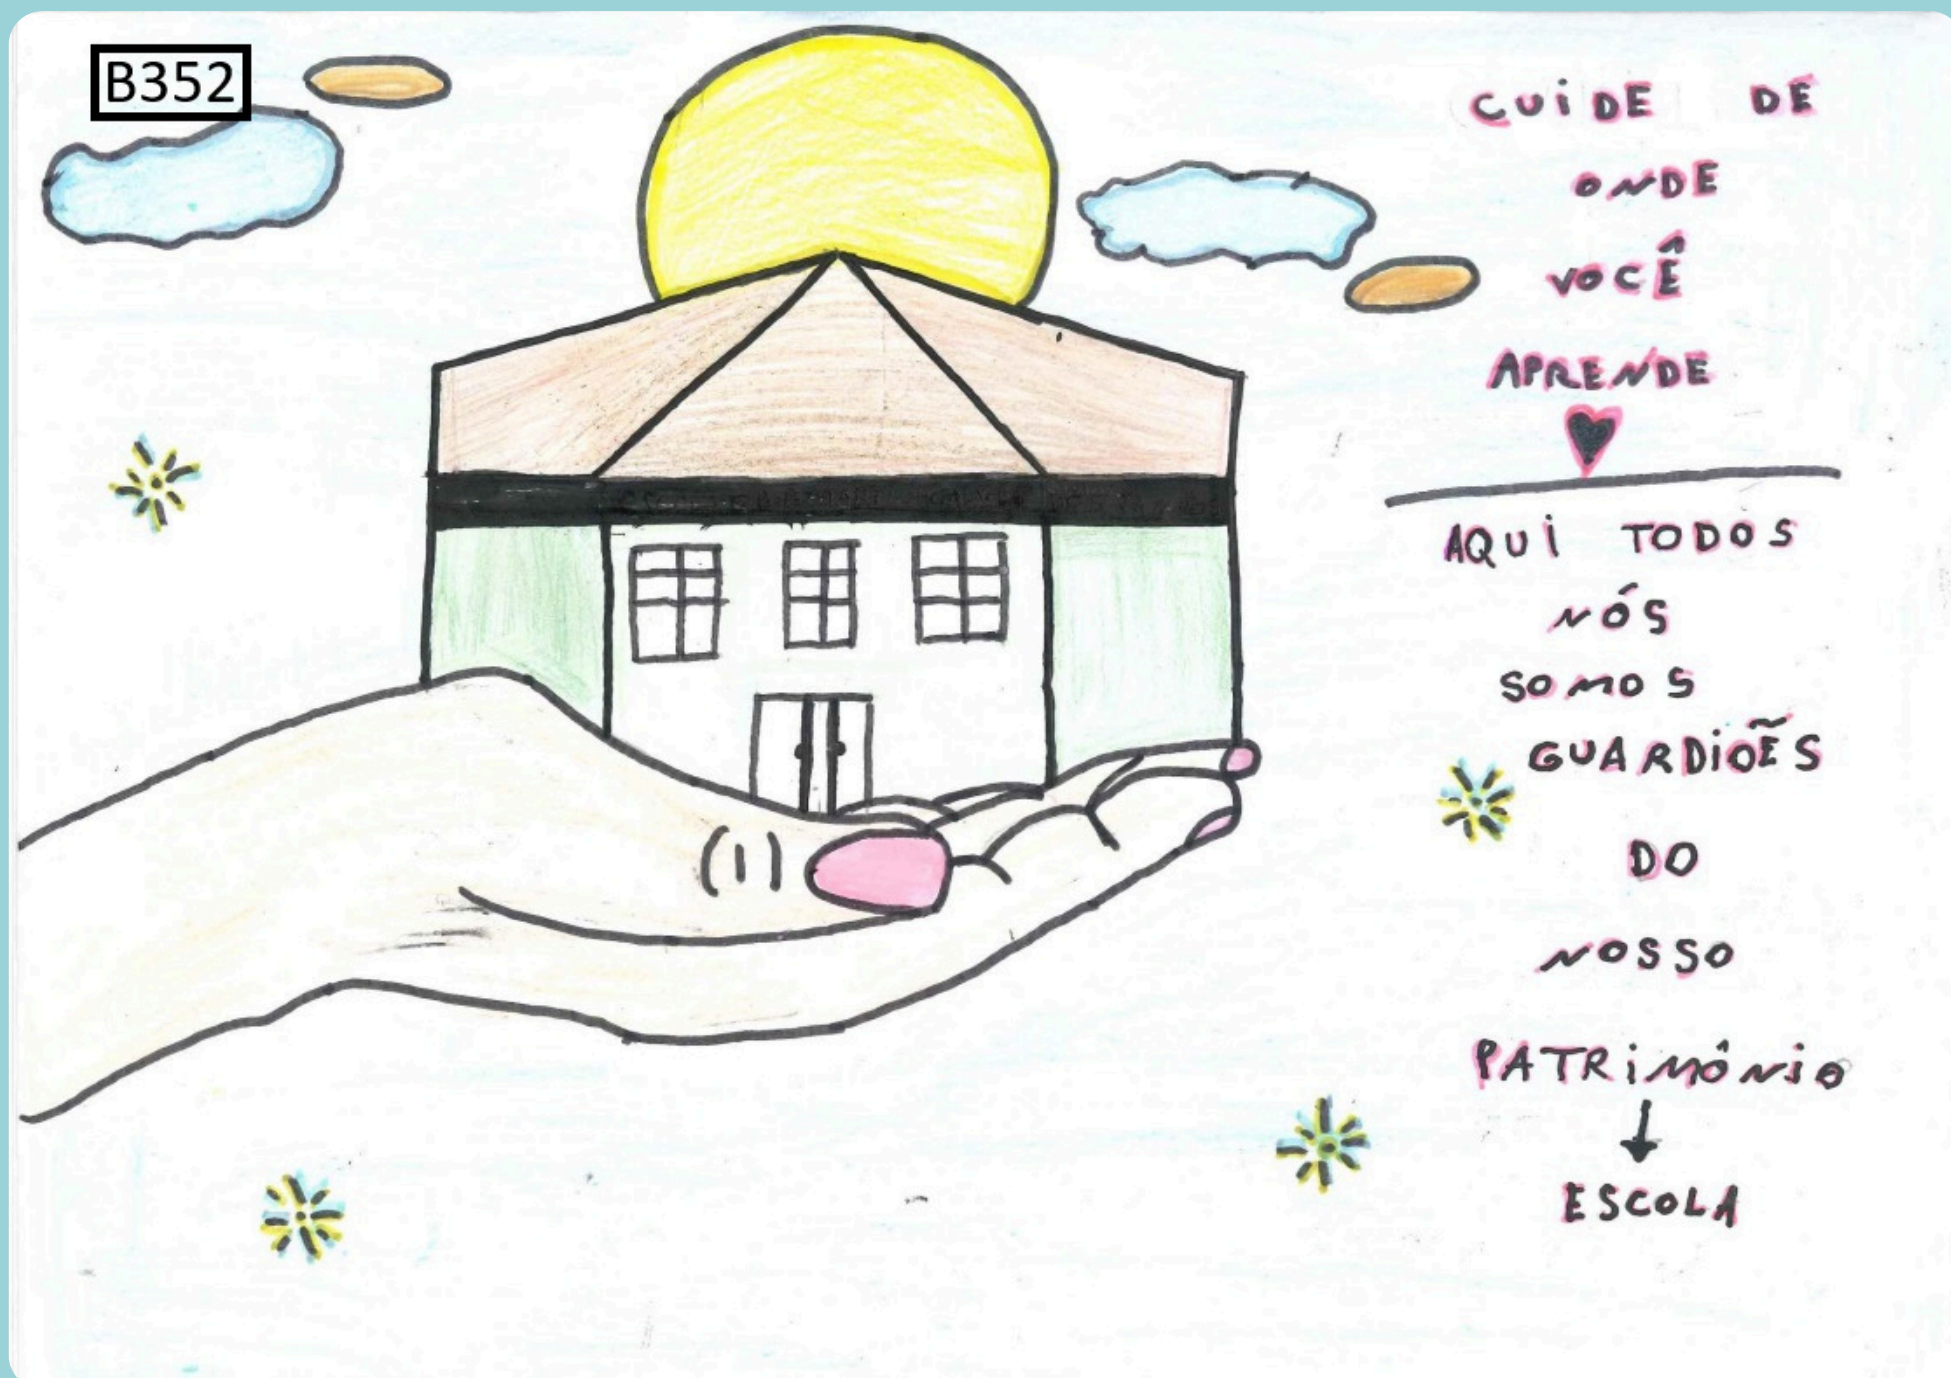 B352
CUIDE DE
ONDE
VOCÊ
APRENDE
AQUI TODOS
NÓS
SOMOS
GUARDIÕES
DO
NOSSO
PATRIMÔNIO
ESCOLA